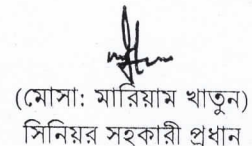 (মোসা: মারিয়াম খাতুন)
সিনিয়র সহকারী প্রধান